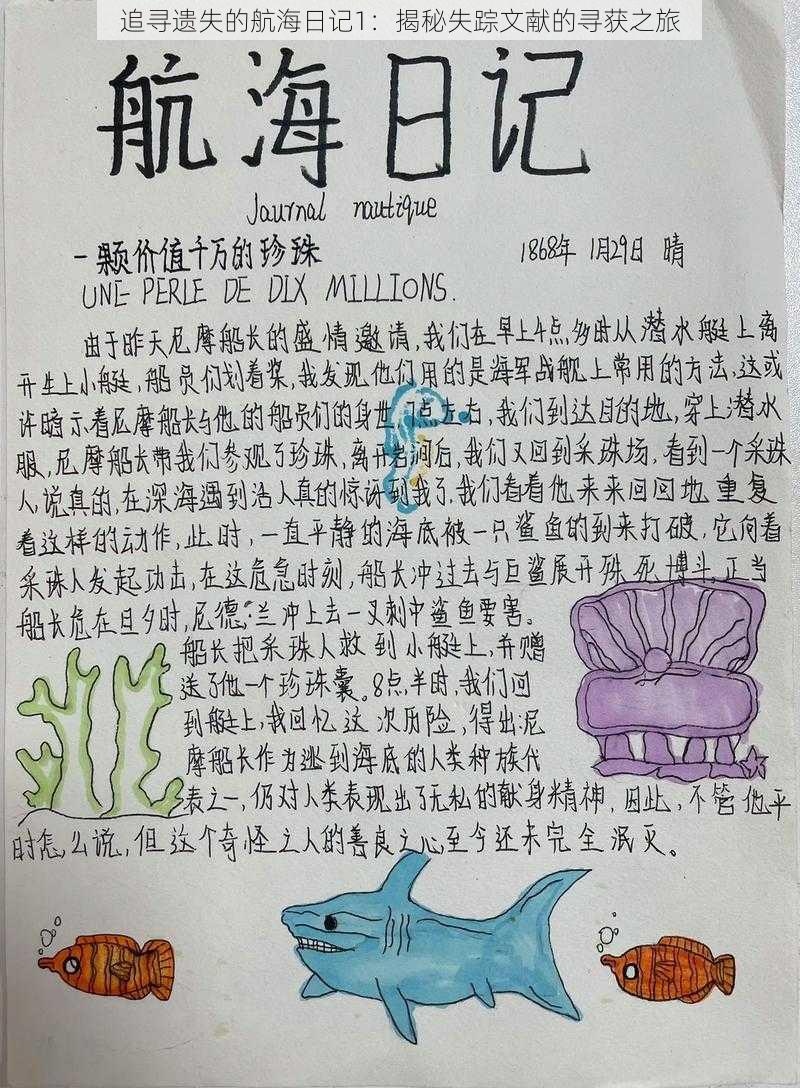 追寻遗失的航海日记1：揭秘失踪文献的寻获之旅
航海日记
Journal nautique
一颗价值千万的珍珠 1868年 1月29日 晴
UNE PERLE DE DIX MILLIONS.
由于昨天尼摩船长的盛情邀请,我们在早上4点多时从潜水艇上离
开坐上小艇,船员们划着桨,我发现他们用的是海军战舰上常用的方法,这或
许暗示着尼摩船长与他的船员们的身世,门点左右,我们到达目的地,穿上潜水
服,尼摩船长带我们参观了珍珠,离开岩洞后,我们又回到采珠场,看到一个采珠
人,说真的,在深海遇到活人真的惊讶到我了,我们看着他来来回回地重复
着这样的动作,此时,一直平静的海底被一只鲨鱼的到来打破,它向着
采珠人发起功击,在这危急时刻,船长冲过去与巨鲨展开殊死搏斗,正当
船长危在旦夕时,尼德·兰冲上去一叉刺中鲨鱼要害。
船长把采珠人救到小艇上,并赠
送了他一个珍珠囊。8点半时,我们回
到艇上,我回忆这次历险,得出:尼
摩船长作为逃到海底的人类种族代
表之一,仍对人类表现出了无私的献身精神,因此,不管他平
时怎么说,但这个奇怪之人的善良之心至今还未完全泯灭。